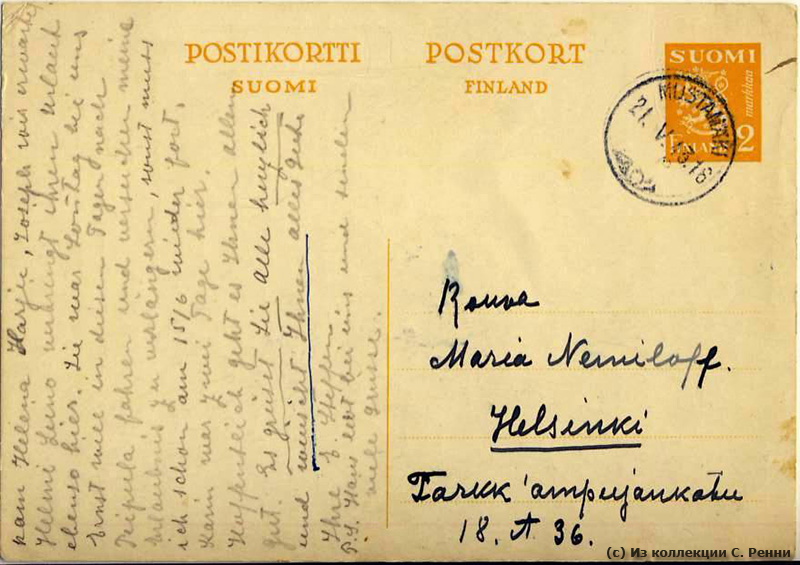 POSTIKORTTI
SUOMI
POSTKORT
FINLAND
SUOMI
markkaa
2
FINLAND
MUSTAMÄKI
21. V. 43.18
Rouva
Maria Nemiloff.
Helsinki
Tarkk'ampujankatu
18. A 36.
kam Helena Harju, Joseph wir erwarten
Helmi Leino verbringt ihren Urlaub
ebenso hier. Sie war Sonntag bei uns
Ernst will in diesen Tagen nach
fahren und versuchen meine
Erlaubnis zu verlängern, sonst muss
ich schon am 15/6 wieder fort.
Karin war zwei Tage hier.
Hoffentlich geht es Ihnen allen
gut. Es grüsst Sie alle herzlich
und wünscht Ihnen alles Gute
Ihre Steffen
P.S. Hans lebt bei uns und
viele Grüsse.
(c) Из коллекции С. Ренни